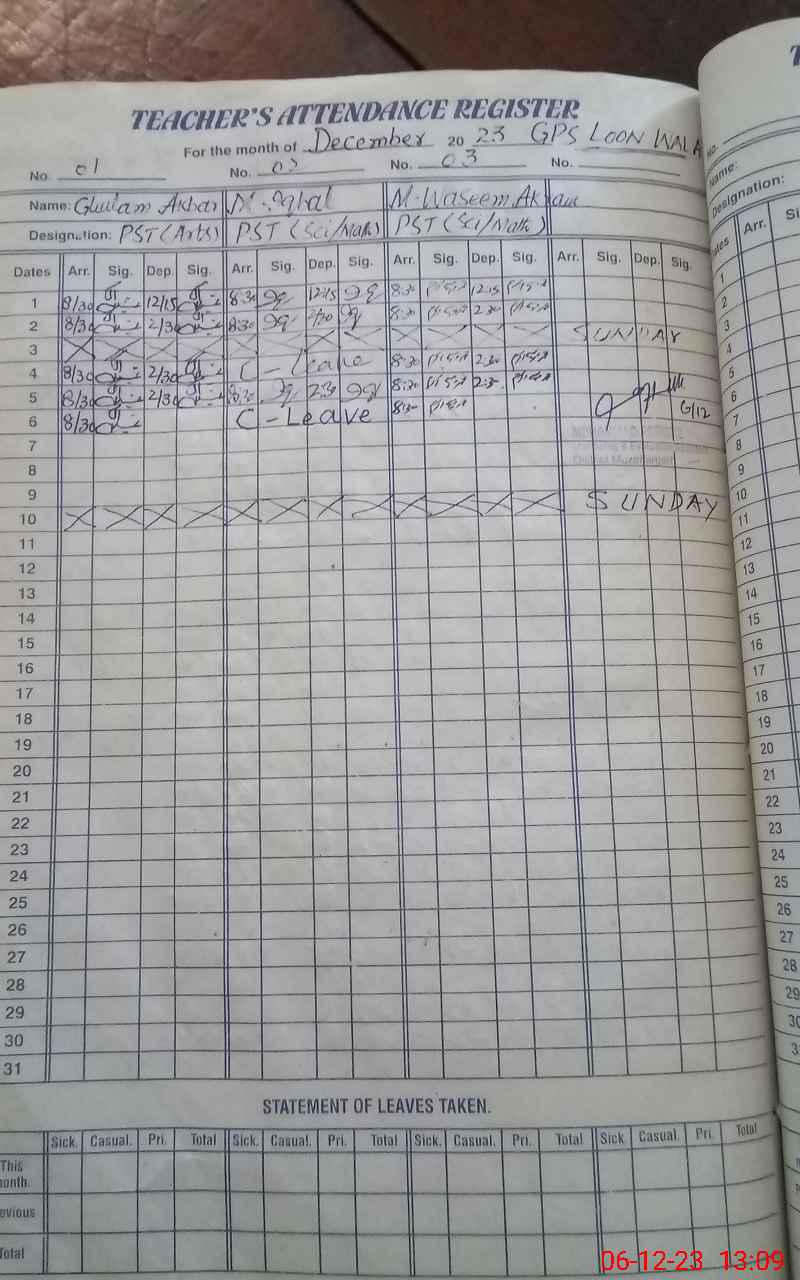 TEACHER'S ATTENDANCE REGISTER
For the month of December 2023 GPS LOON WALA
No. 01 No. 02 No. 03 No.
Name: Ghulam Akbar M. Iqbal M. Waseem Akram
Designation: PST (Arts) PST (Sci/Math) PST (Sci/Math)
Dates Arr. Sig. Dep. Sig. Arr. Sig. Dep. Sig. Arr. Sig. Dep. Sig. Arr. Sig. Dep. Sig.
1 8/30 12/15 8:30 12:15 8:30 12:15
2 8/30 2/30 8:30 2/30 8:30 2:30 SUNDAY
3
4 8/30 2/30 C-Leave 8:30 2:30
5 8/30 2/30 8:30 2:30 8:30 2:30
6 8/30 C-Leave 8:30 6/12
7
8
9
10 SUNDAY
11
12
13
14
15
16
17
18
19
20
21
22
23
24
25
26
27
28
29
30
31
STATEMENT OF LEAVES TAKEN.
Sick. Casual. Pri. Total Sick. Casual. Pri. Total Sick. Casual. Pri. Total Sick. Casual. Pri. Total
This
onth.
evious
otal
No.
Name:
Designation:
ates Arr. Si
1
2
3
4
5
6
7
8
9
10
11
12
13
14
15
16
17
18
19
20
21
22
23
24
25
26
27
28
29
30
3
06-12-23 13:09